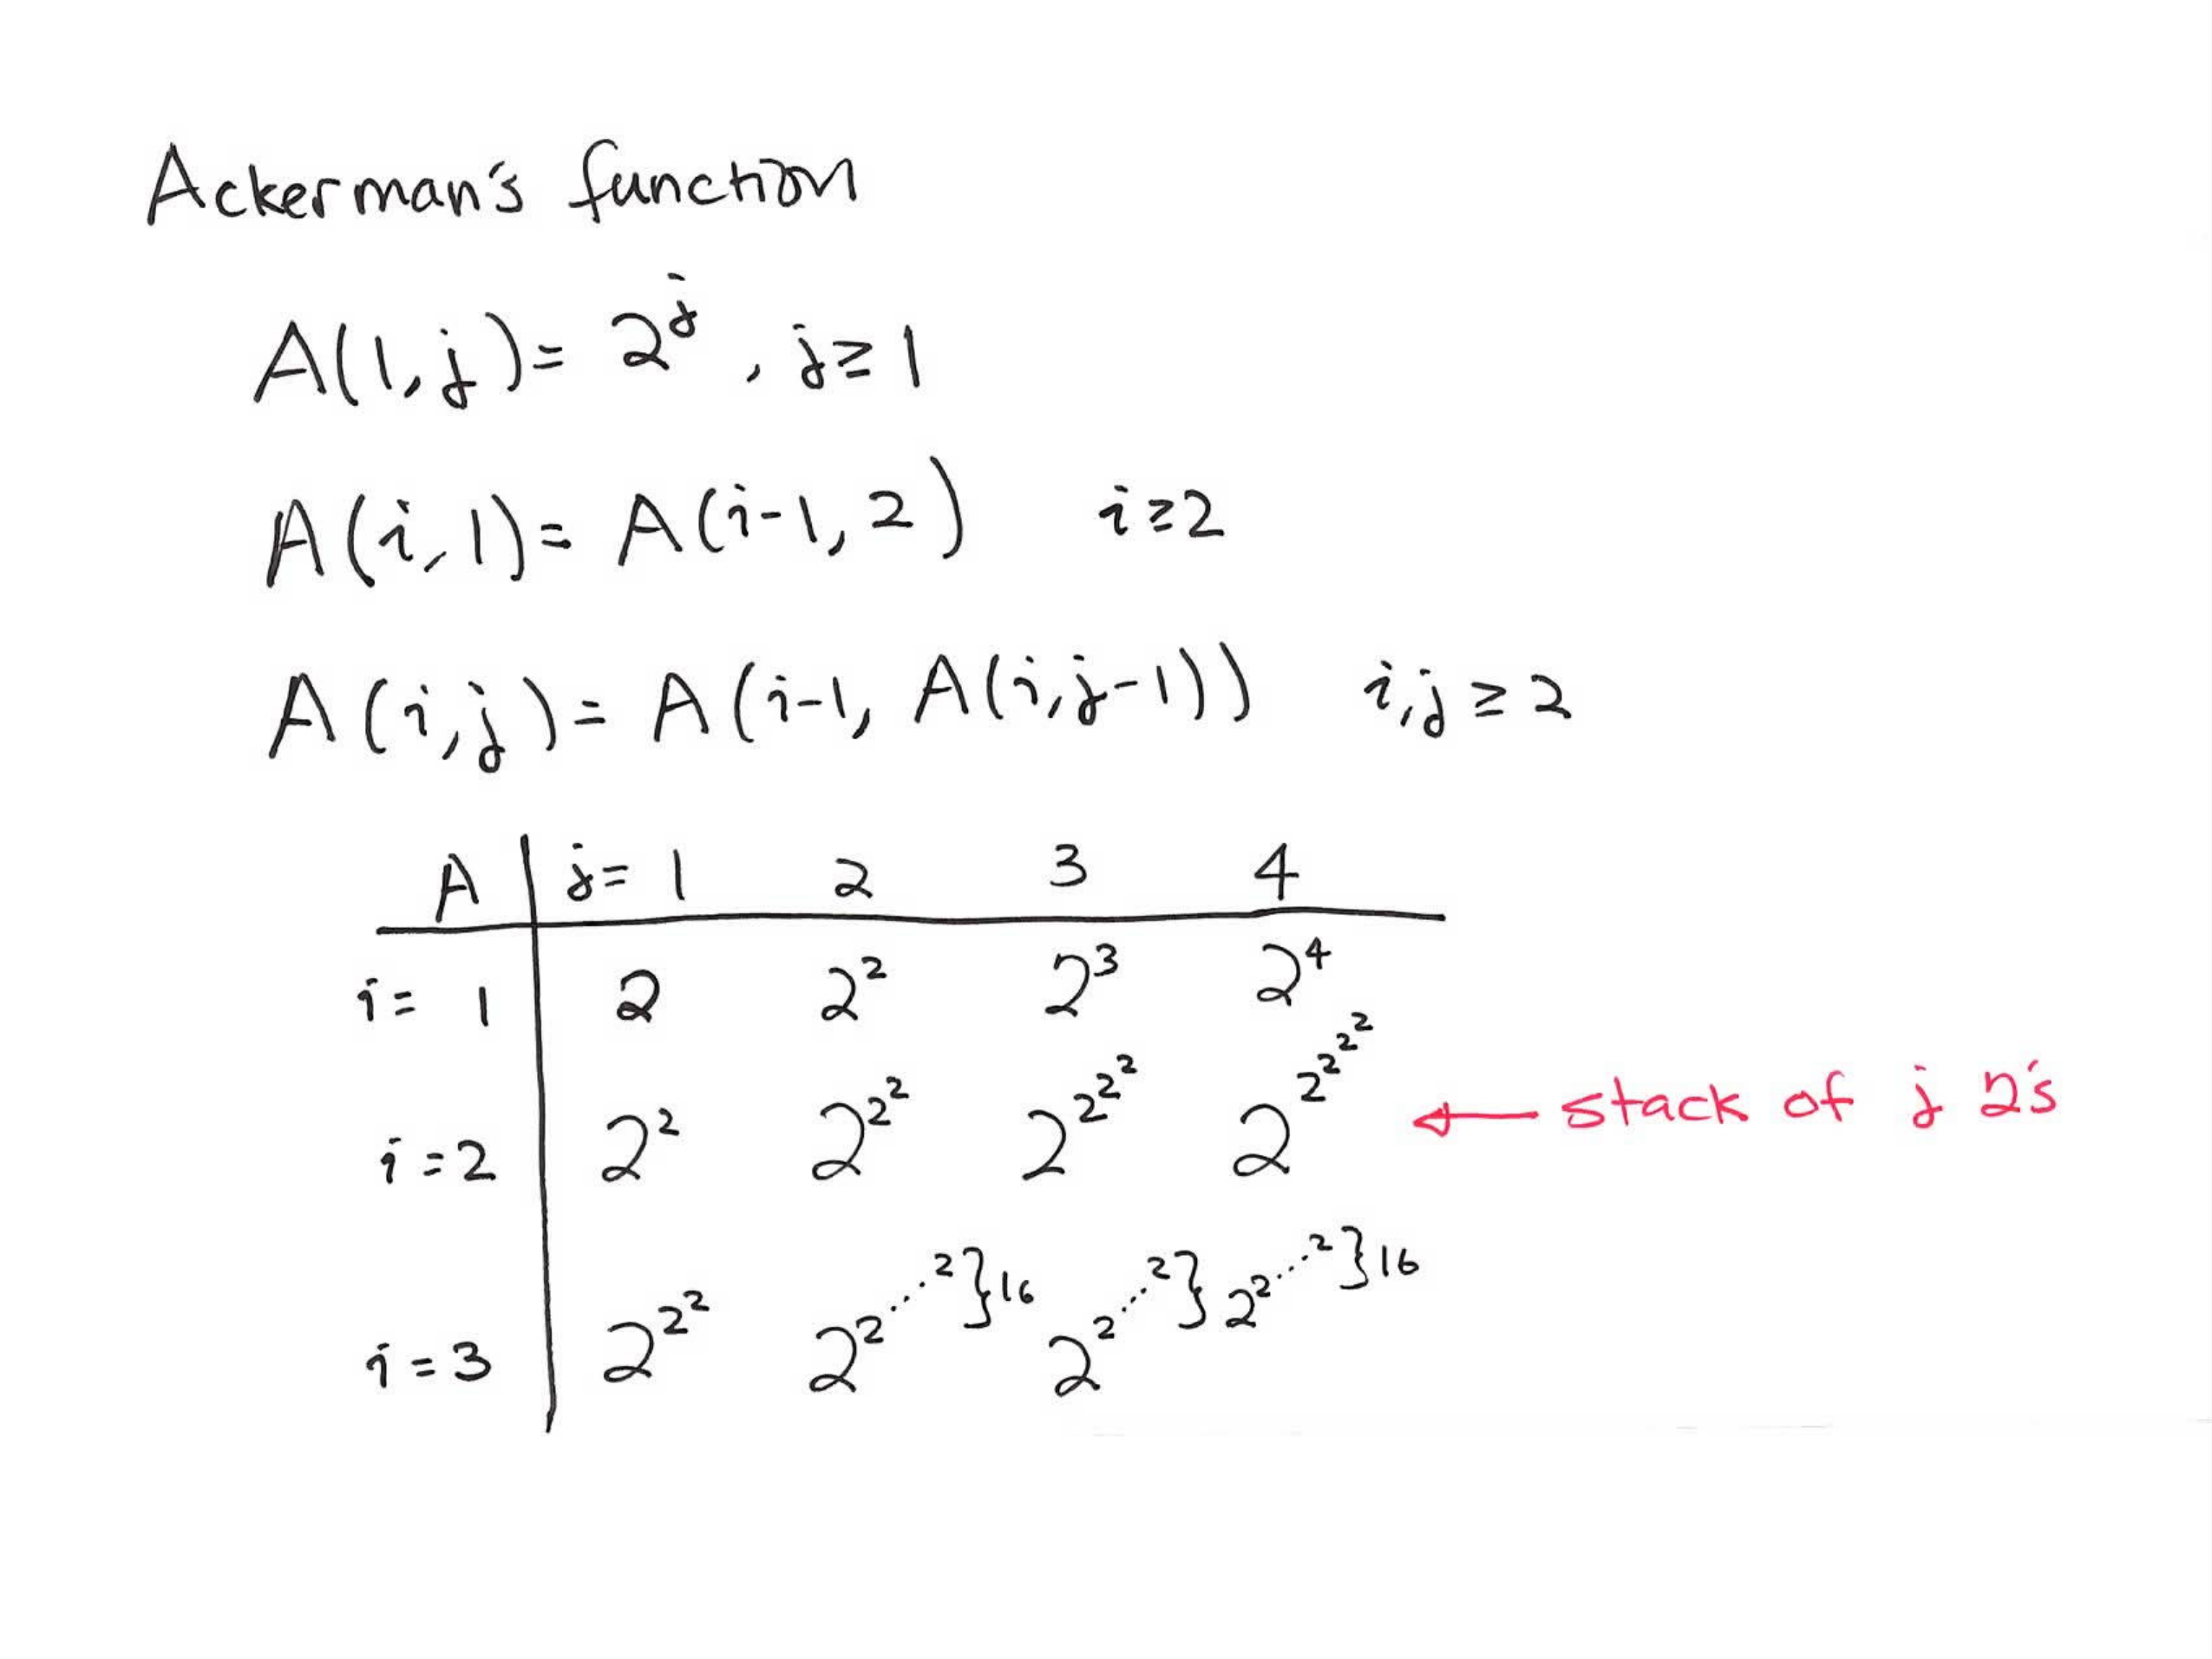 Ackerman's function
A(1,j) = 2^j , j ≥ 1
A(i,1) = A(i-1, 2) i ≥ 2
A(i,j) = A(i-1, A(i,j-1)) i,j ≥ 2
A j= 1 2 3 4
i= 1 2 2^2 2^3 2^4
i=2 2^2 2^2^2 2^2^2^2 2^2^2^2^2 ← stack of j 2's
i=3 2^2^2 2^2^...^2}16 2^2^...^2}2^2^...^2}16